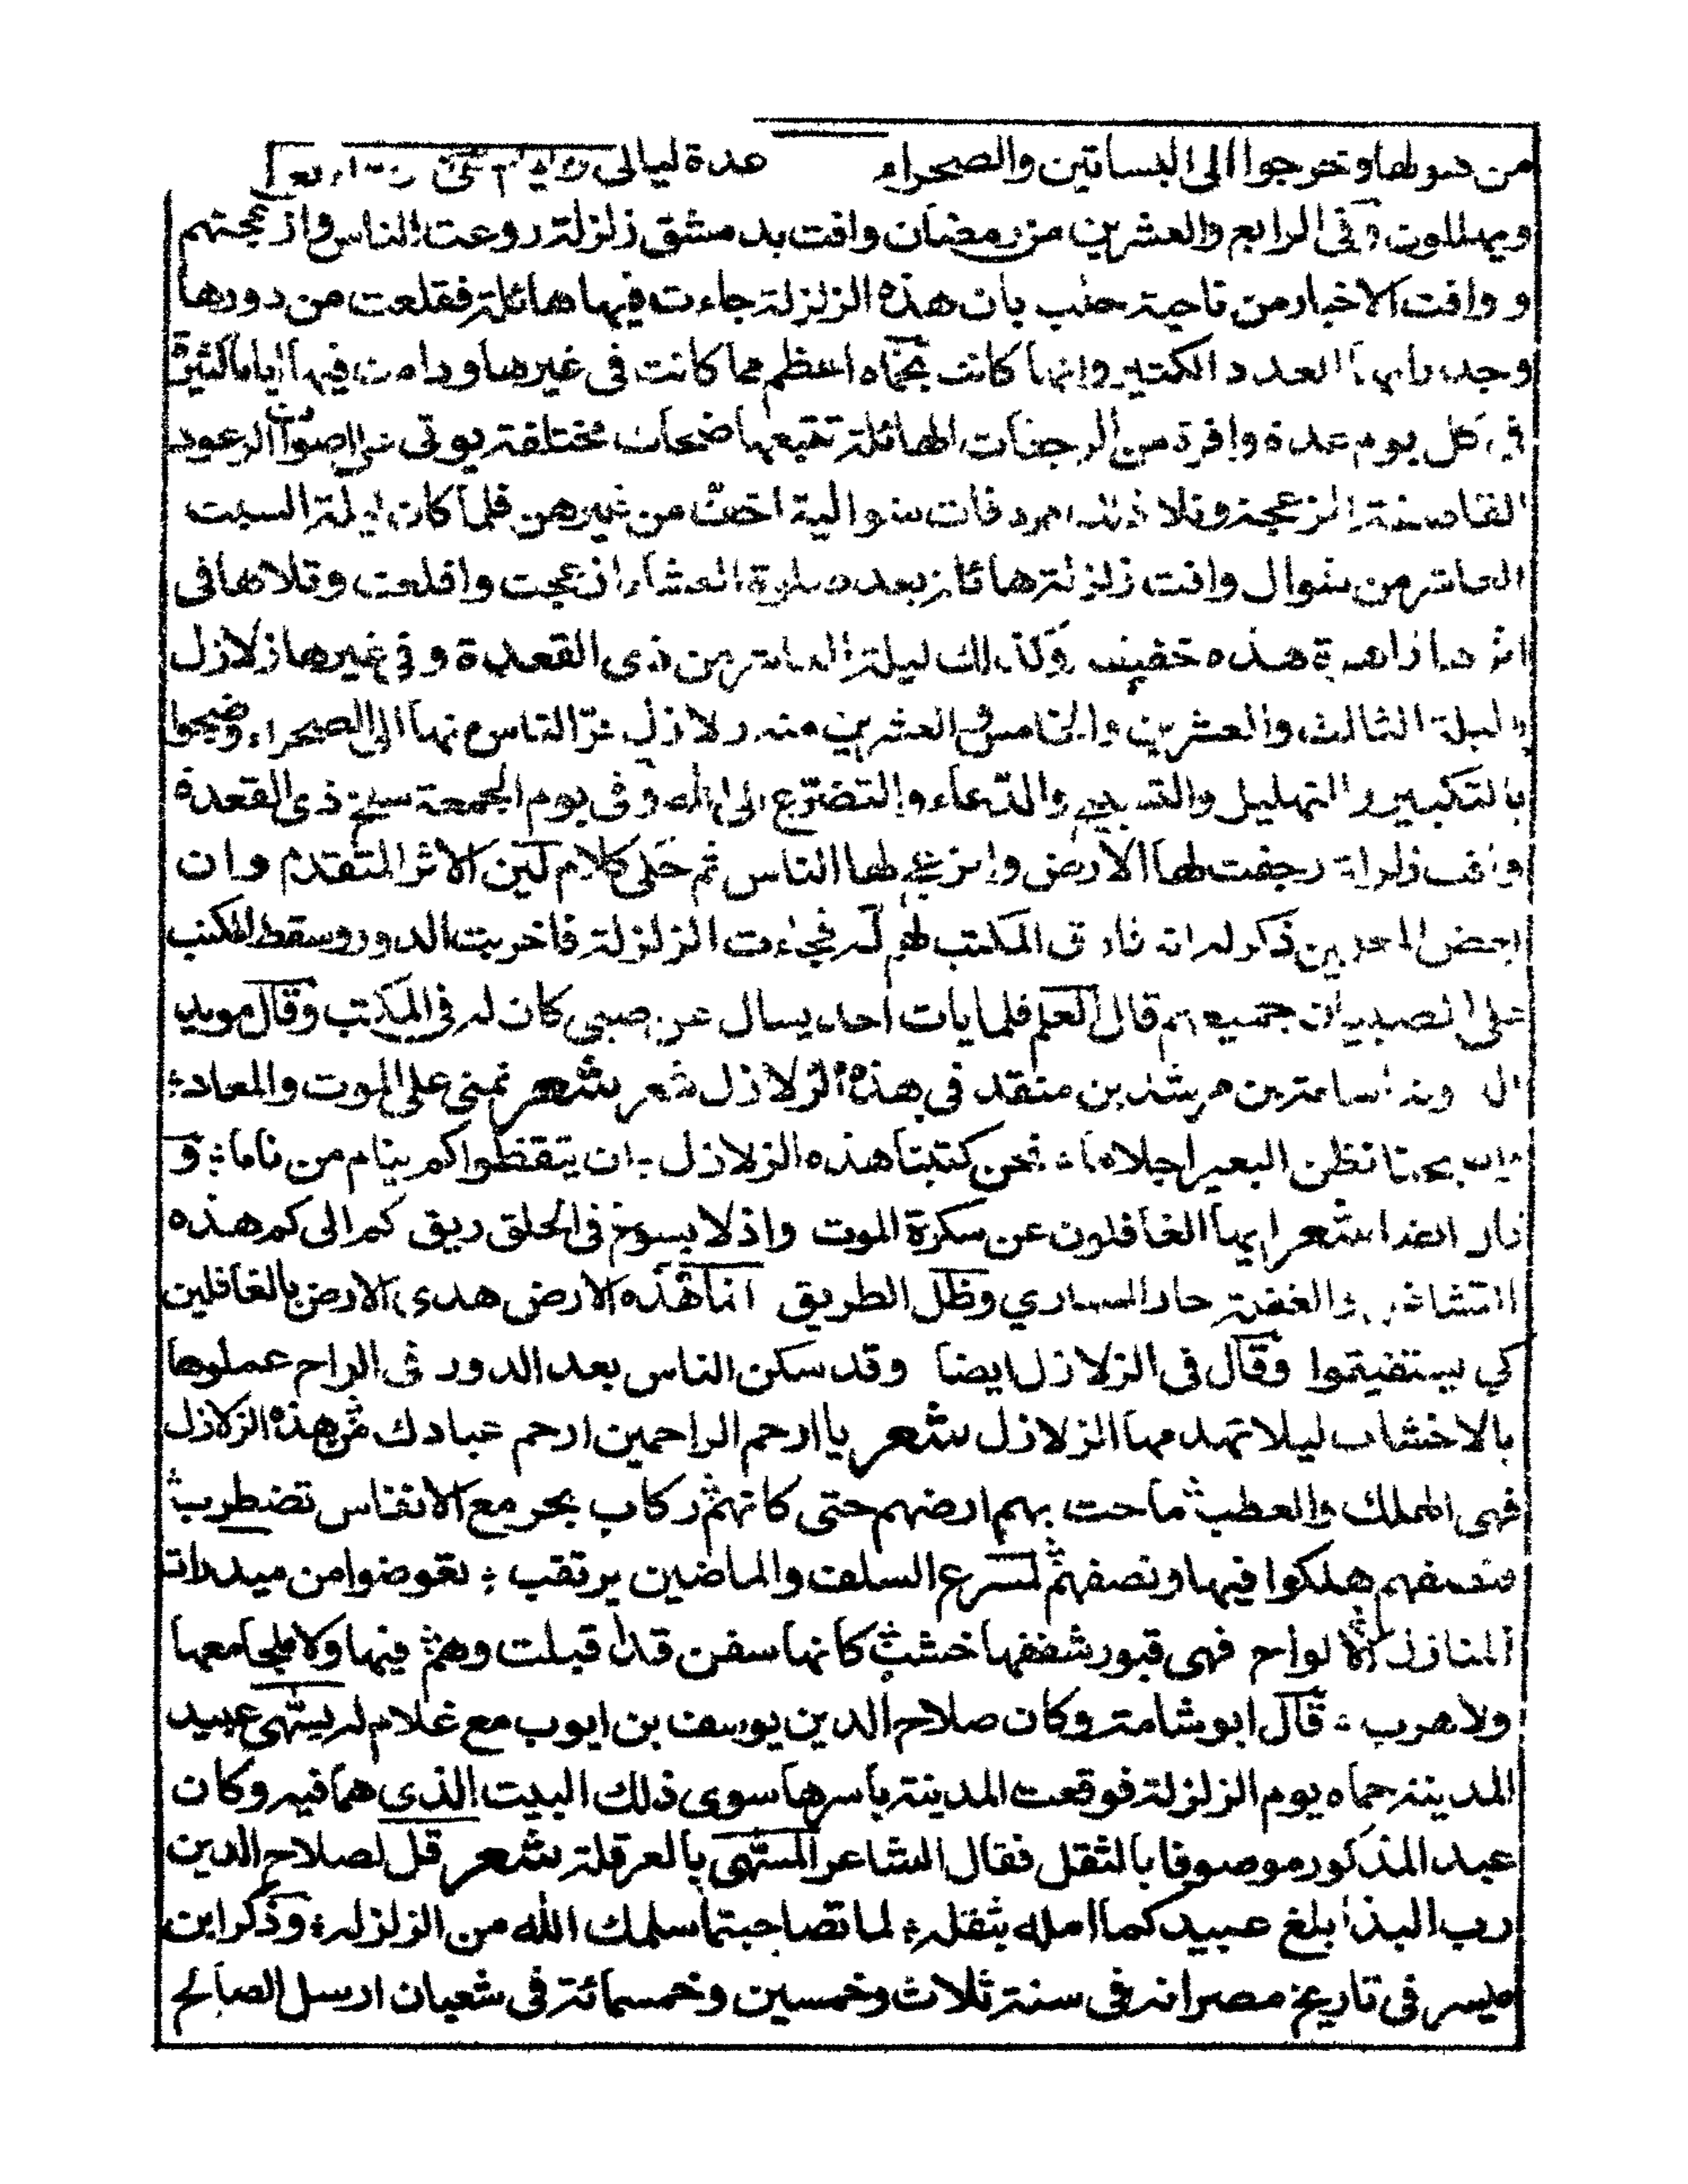 من هولها وخرجوا الى البساتين والصحراء عدة ليالى
ويهللون وفى الرابع والعشرين من رمضان وافت بدمشق زلزلة روعت الناس وازعجتهم
و وافت الاخبار من ناحية حلب بان هذه الزلزلة جاءت فيها هائلة فقلعت من دورها
وجدرانها العدد الكثير وانها كانت بحماه اعظم مما كانت فى غيرها ودامت فيها اياما كثيرة
فى كل يوم عدة وافرة من الرجفات الهائلة تتبعها صحات مختلفة يوفى على اصوات الرعود
القاصفة المزعجة وتلا ذلك رجفات متوالية اخف من غيرهن فلما كان ليلة السبت
العاشر من شوال وافت زلزلة هائلة بعد صلوة العشاء ازعجت واقلعت وتلاها فى
اثرها زلزلة هذه خفيف وكذلك ليلة العاشر من ذى القعدة وفى غيرها زلازل
وليلة الثالث والعشرين والخامس والعشرين منه زلازل نفر الناس منها الى الصحراء وضجوا
بالتكبير والتهليل والتسبيح والدعاء والتضرع الى الله وفى يوم الجمعة سلخ ذى القعدة
وافت زلزلة رجفت لها الارض وانزعج لها الناس ثم حكى كلام ابن الاثر المتقدم وان
بعض المعلمين ذكر له انه فارق المكتب لهم له فجاءت الزلزلة فاخربت الدور وسقط المكتب
على الصبيان جميعهم قال المعلم فلما يات احد يسال عن صبى كان له فى المكتب وقال مويد
الدولة اسامة بن مرشد بن منقد فى هذه الزلازل شعر شعر نمنى على الموت والمعاد
نظن البعير احلاما نحن كتبنا هذه الزلازل ان يتقظوا كم ينام من ناما و
قال ايضا شعر ايها الغافلون عن سكرة الموت واذ لا يسوخ فى الحلق ريق كم الى كم هذه
التشاغل والغفلة حار السارى وظل الطريق انما هذه الارض هدى الارض بالغافلين
كي يستفيقوا وقال فى الزلازل ايضا وقد سكن الناس بعد الدور فى الراح عملوها
بالاخشاب ليلا تهدمها الزلازل شعر يا ارحم الراحمين ارحم عبادك من هذه الزلازل
فهى الهلك والعطب ماحت بهم ارضهم حتى كانهم ركاب بحر مع الانفاس تضطرب
فنصفهم هلكوا فيها ونصفهم لمسرع السلف والماضين يرتقب تعوضوا من ميدات
المنازل الالواح فهى قبور شففها خشب كانها سفن قد اقبلت وهم فيها ولا ملجا معها
ولا هرب قال ابو شامة وكان صلاح الدين يوسف بن ايوب مع غلام له يسمى عبيد
المدينة حماه يوم الزلزلة فوقعت المدينة باسرها سوى ذلك البيت الذى هما فيه وكان
عبد المذكور موصوفا بالثقل فقال الشاعر المسمى بالعرقلة شعر قل لصلاح الدين
رب البذا بلغ عبيد كما امله بثقله لما تصاحبتما سلمك الله من الزلزله وذكر ابن
ميسر فى تاريخ مصر انه فى سنة ثلاث وخمسين وخمسمائة فى شعبان ارسل الصالح